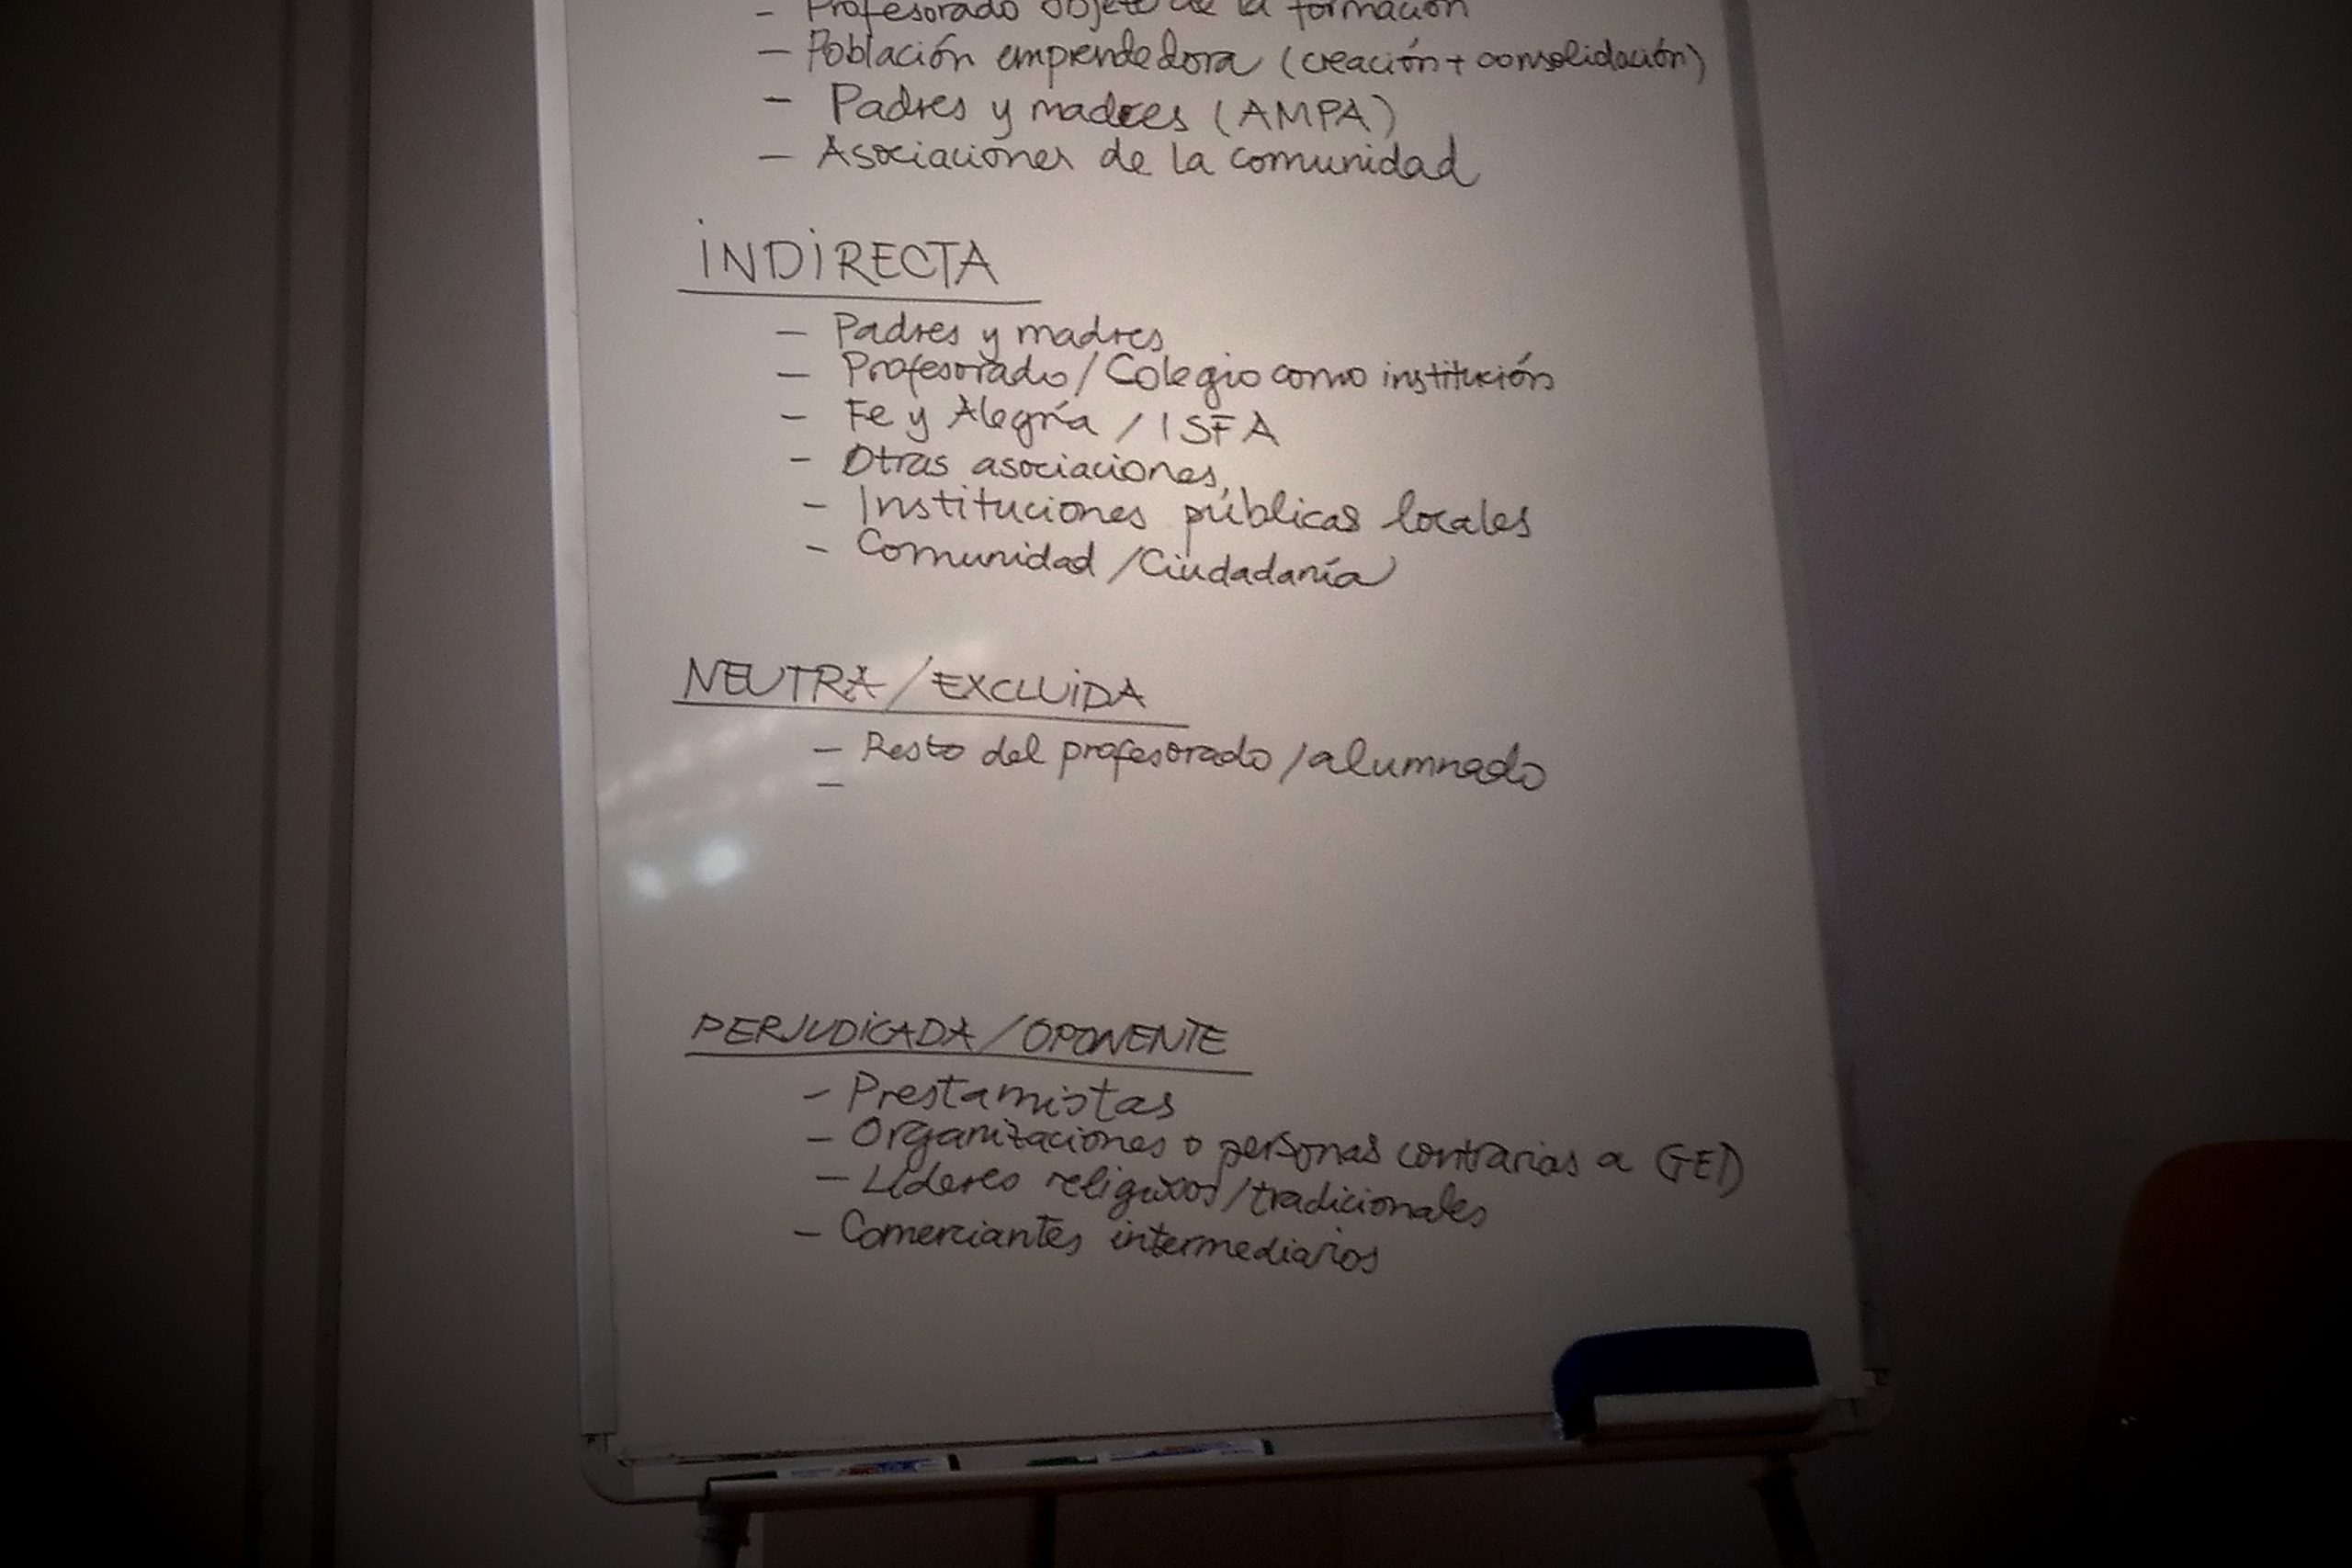 - Profesorado objeto de la formación
- Población emprendedora (creación + consolidación)
- Padres y madres (AMPA)
- Asociaciones de la comunidad
INDIRECTA
- Padres y madres
- Profesorado / Colegio como institución
- Fe y Alegría / ISFA
- Otras asociaciones,
- Instituciones públicas locales
- Comunidad / Ciudadanía
NEUTRA / EXCLUIDA
- Resto del profesorado / alumnado
-
PERJUDICADA / OPONENTE
- Prestamistas
- Organizaciones o personas contrarias a GED
- Líderes religiosos / tradicionales
- Comerciantes intermediarios